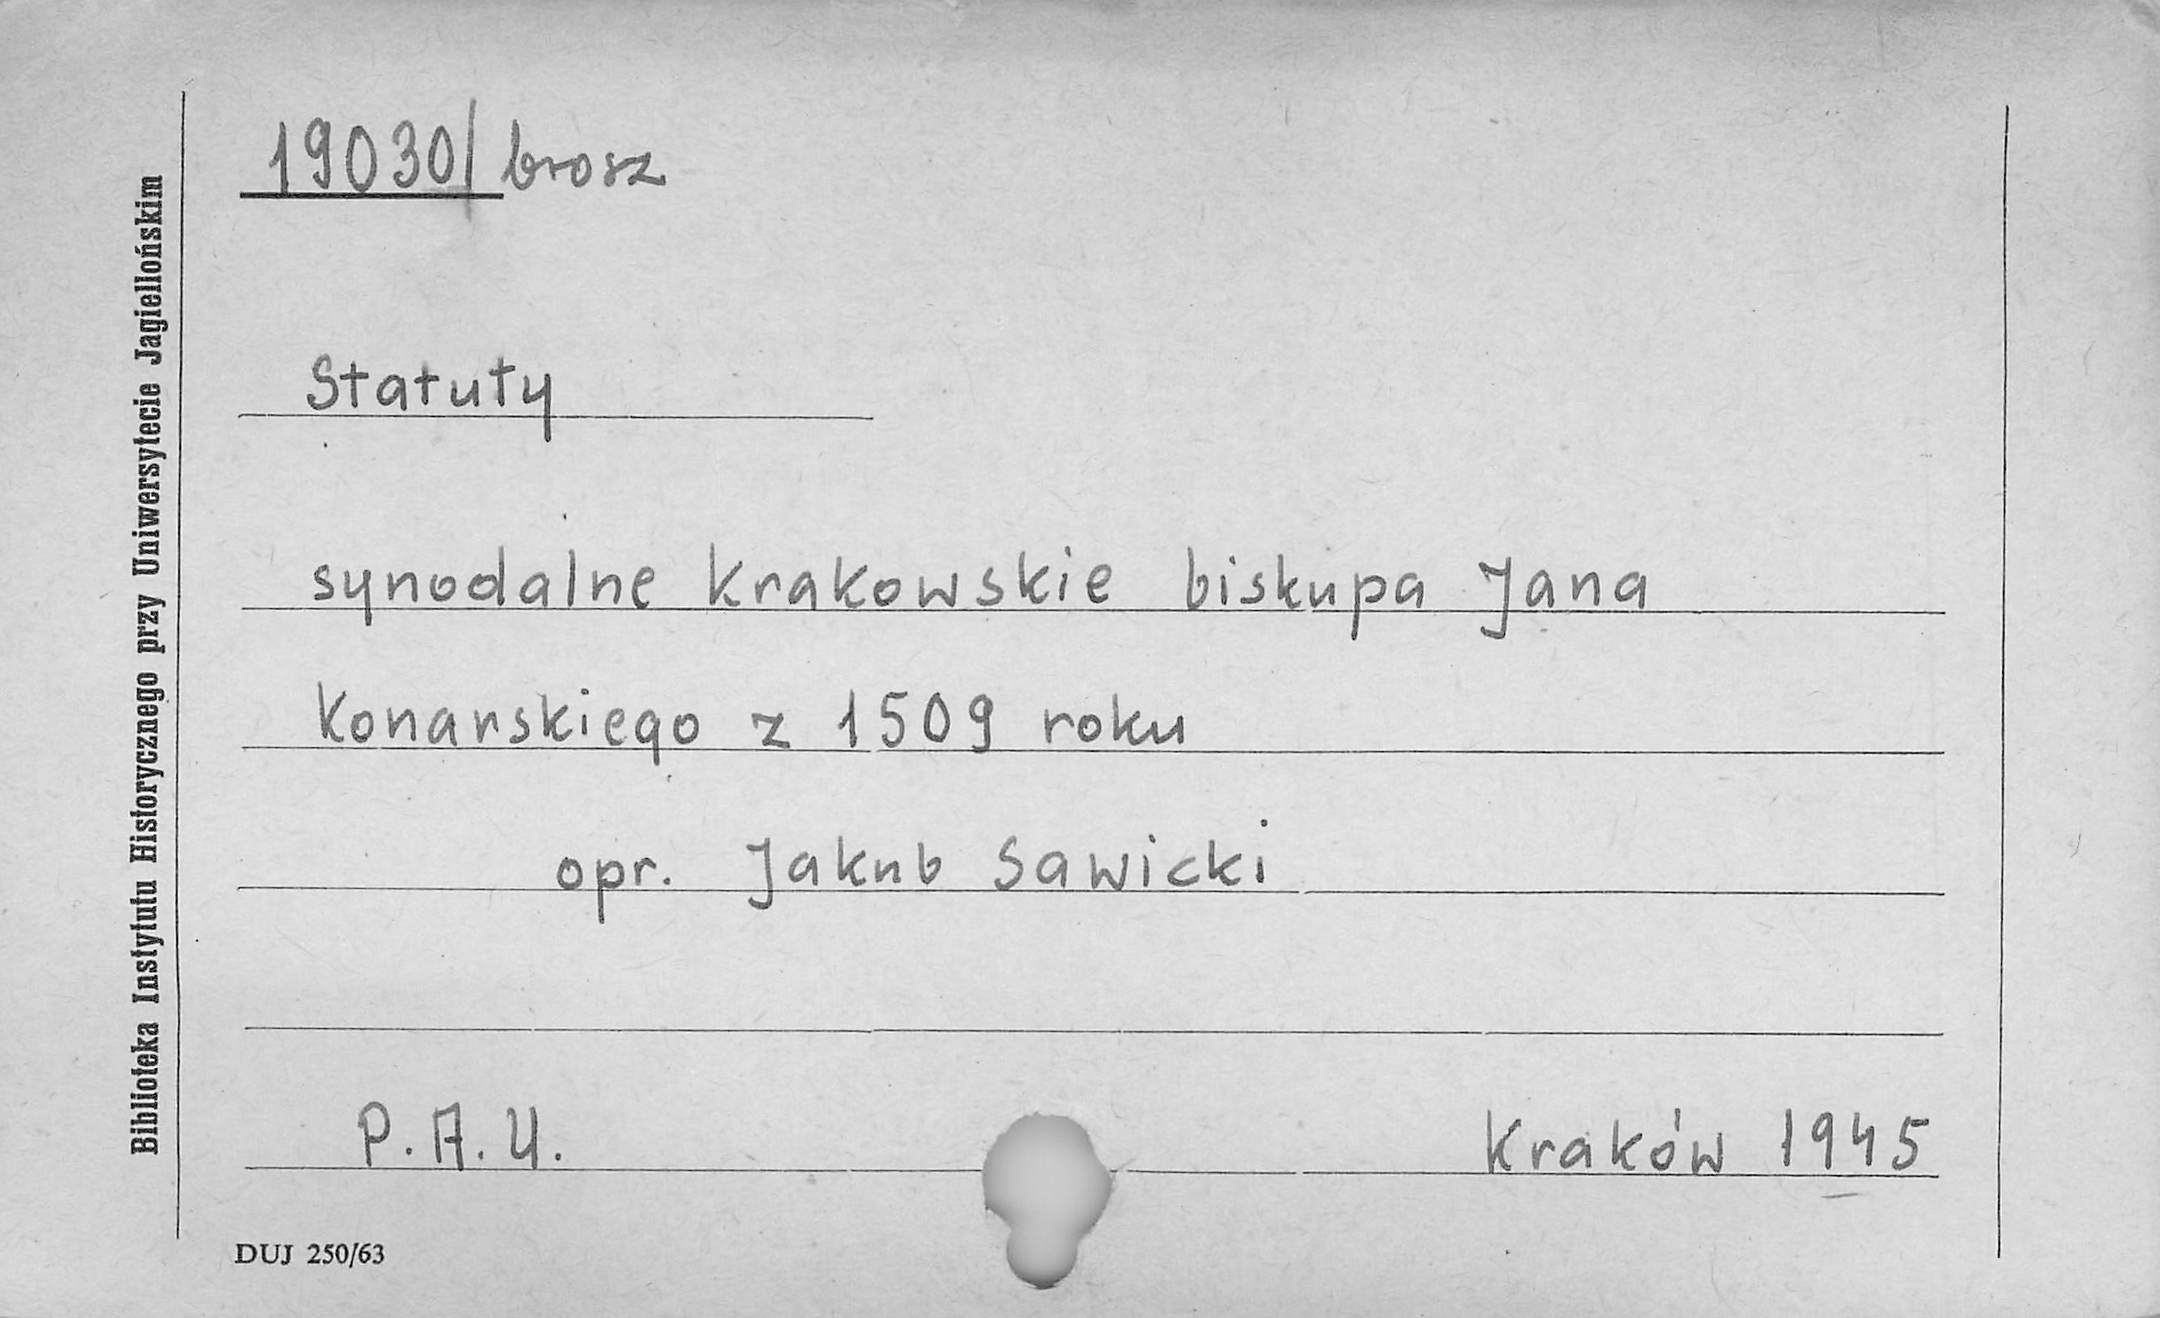 19030/brosz
Statuty
synodalne krakowskie biskupa Jana
Konarskiego z 1509 roku
opr. Jakub Sawicki
P.A.U. Kraków 1945
DUJ 250/63
Biblioteka Instytutu Historycznego przy Uniwersytecie Jagiellońskim